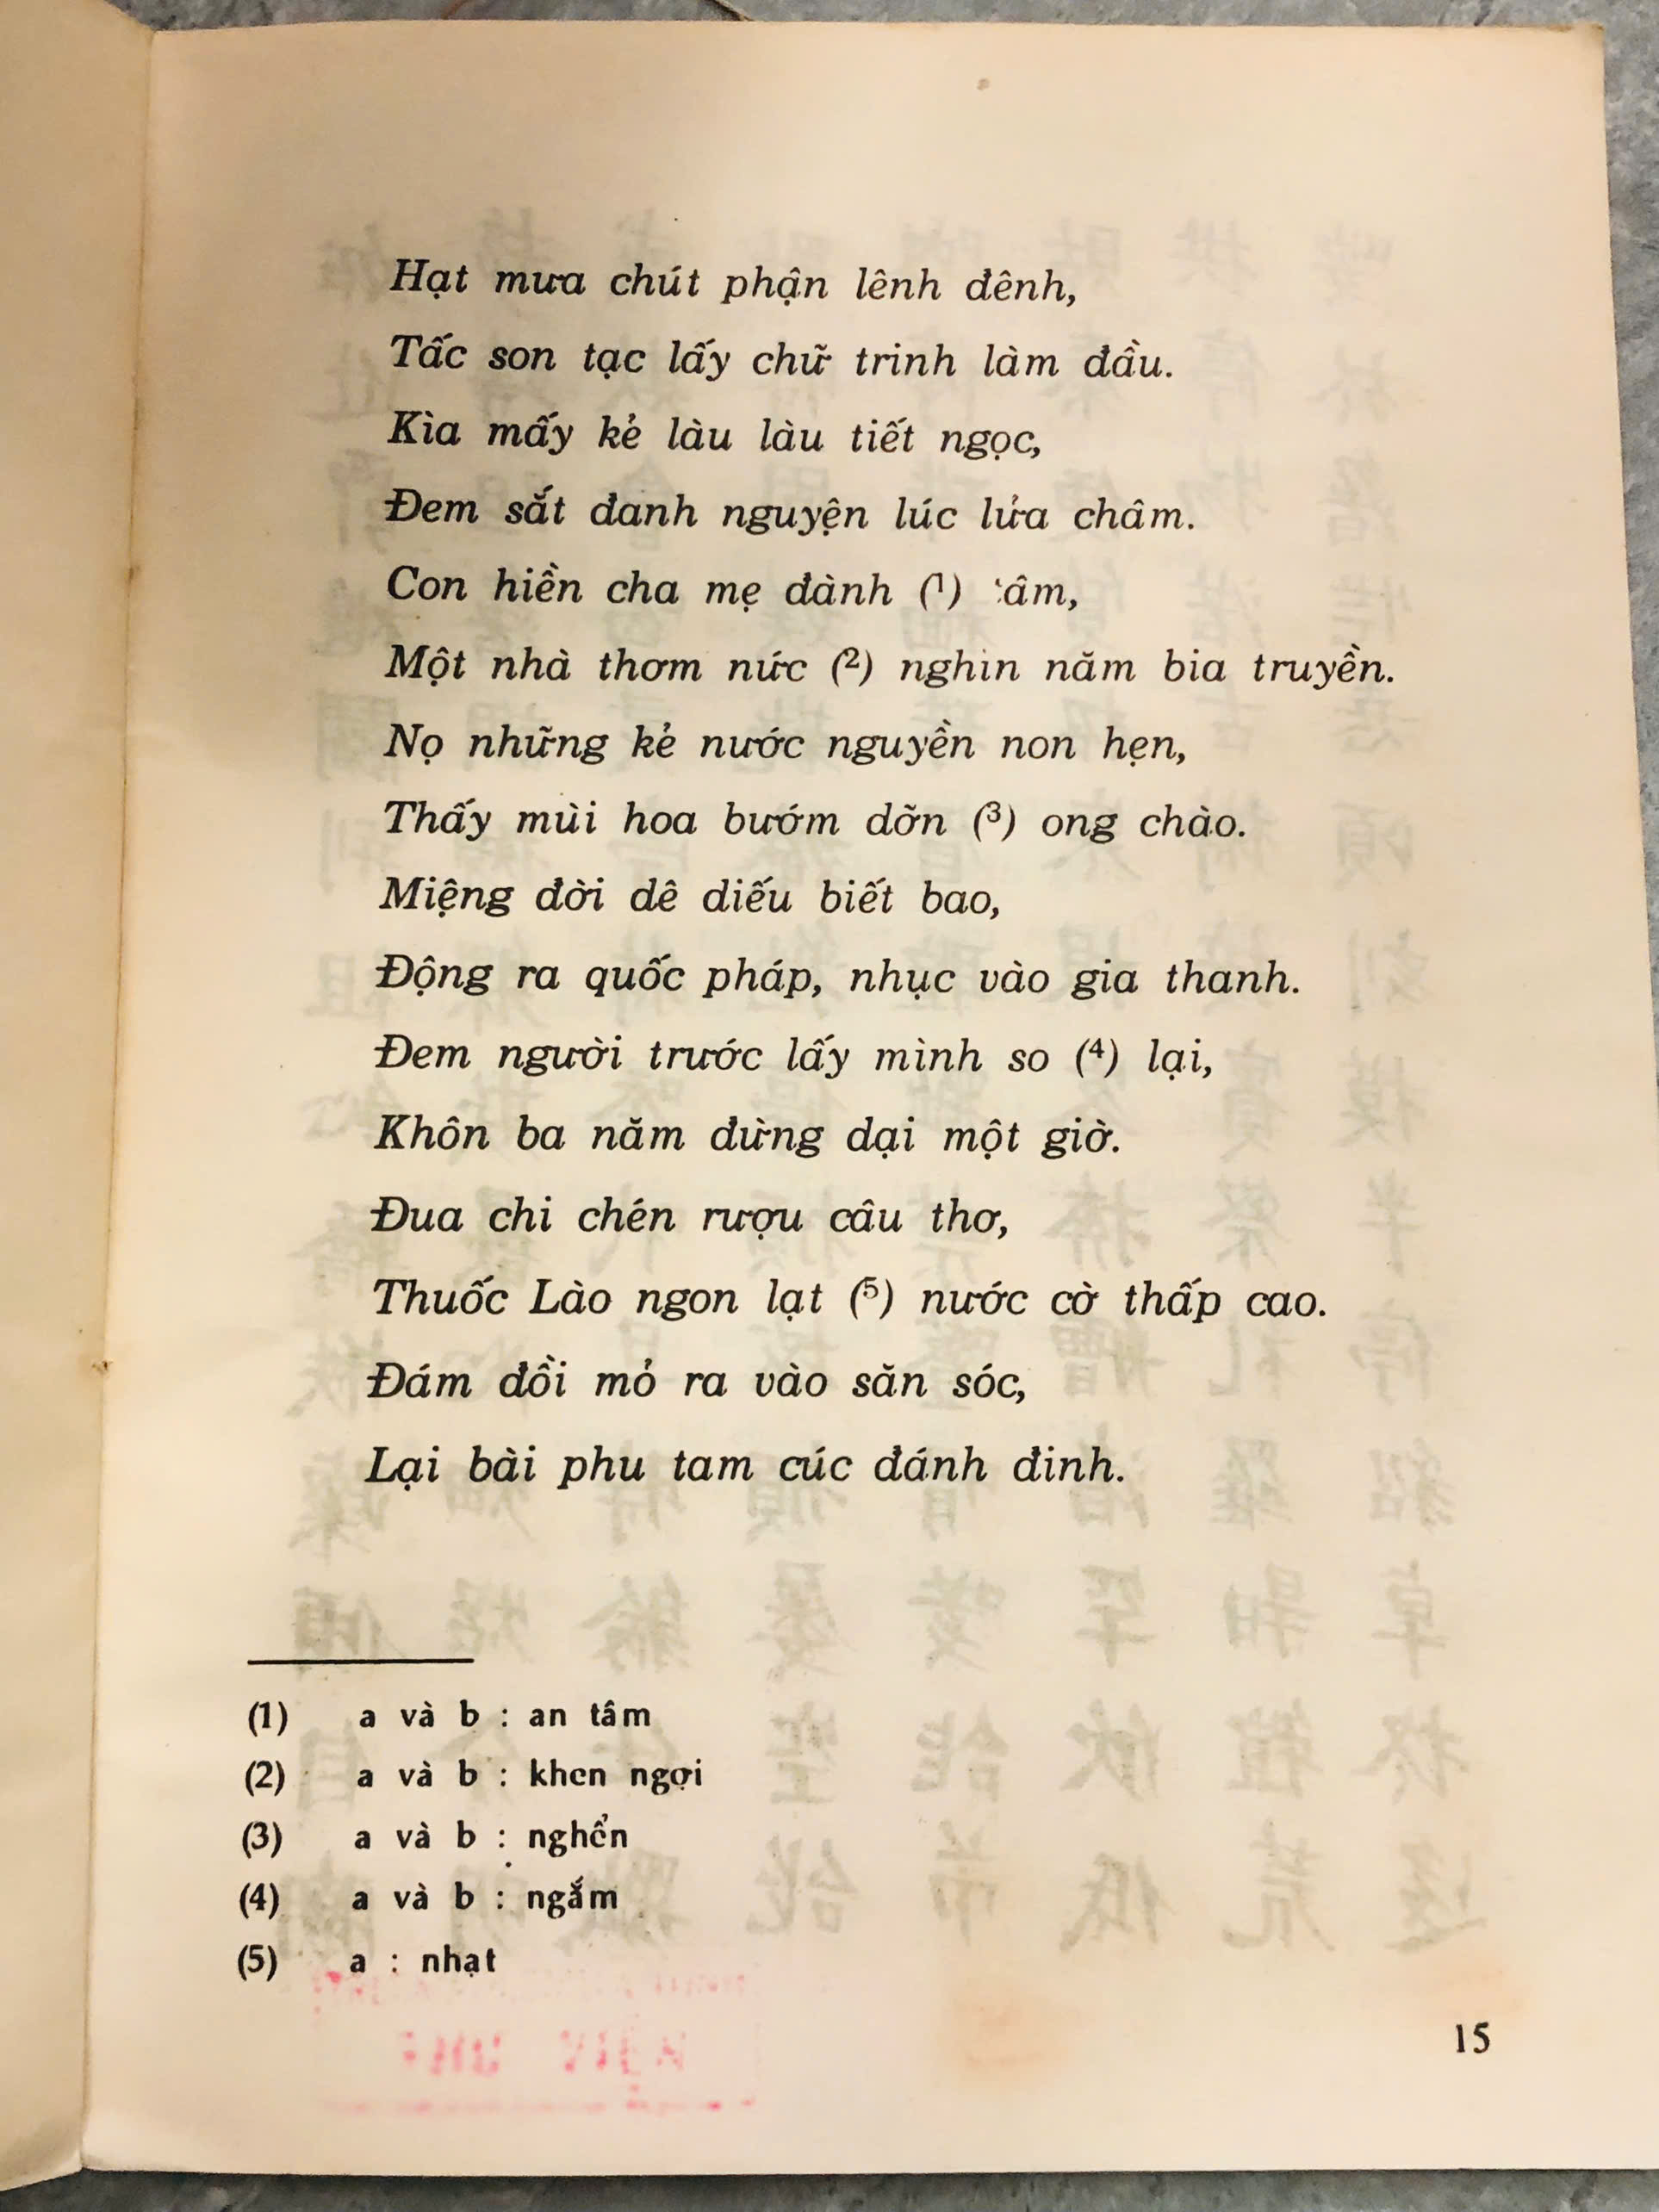 Hạt mưa chút phận lênh đênh,
Tấc son tạc lấy chữ trinh làm đầu.
Kìa mấy kẻ làu làu tiết ngọc,
Đem sắt đanh nguyện lúc lửa châm.
Con hiền cha mẹ đành (1) tâm,
Một nhà thơm nức (2) nghìn năm bia truyền.
Nọ những kẻ nước nguyền non hẹn,
Thấy mùi hoa bướm dỡn (3) ong chào.
Miệng đời dê diếu biết bao,
Động ra quốc pháp, nhục vào gia thanh.
Đem người trước lấy mình so (4) lại,
Khôn ba năm đừng dại một giờ.
Đua chi chén rượu câu thơ,
Thuốc Lào ngon lạt (5) nước cờ thấp cao.
Đám đồi mỏ ra vào săn sóc,
Lại bài phu tam cúc đánh đinh.
(1) a và b : an tâm
(2) a và b : khen ngợi
(3) a và b : nghển
(4) a và b : ngắm
(5) a : nhạt
THƯ VIỆN
15